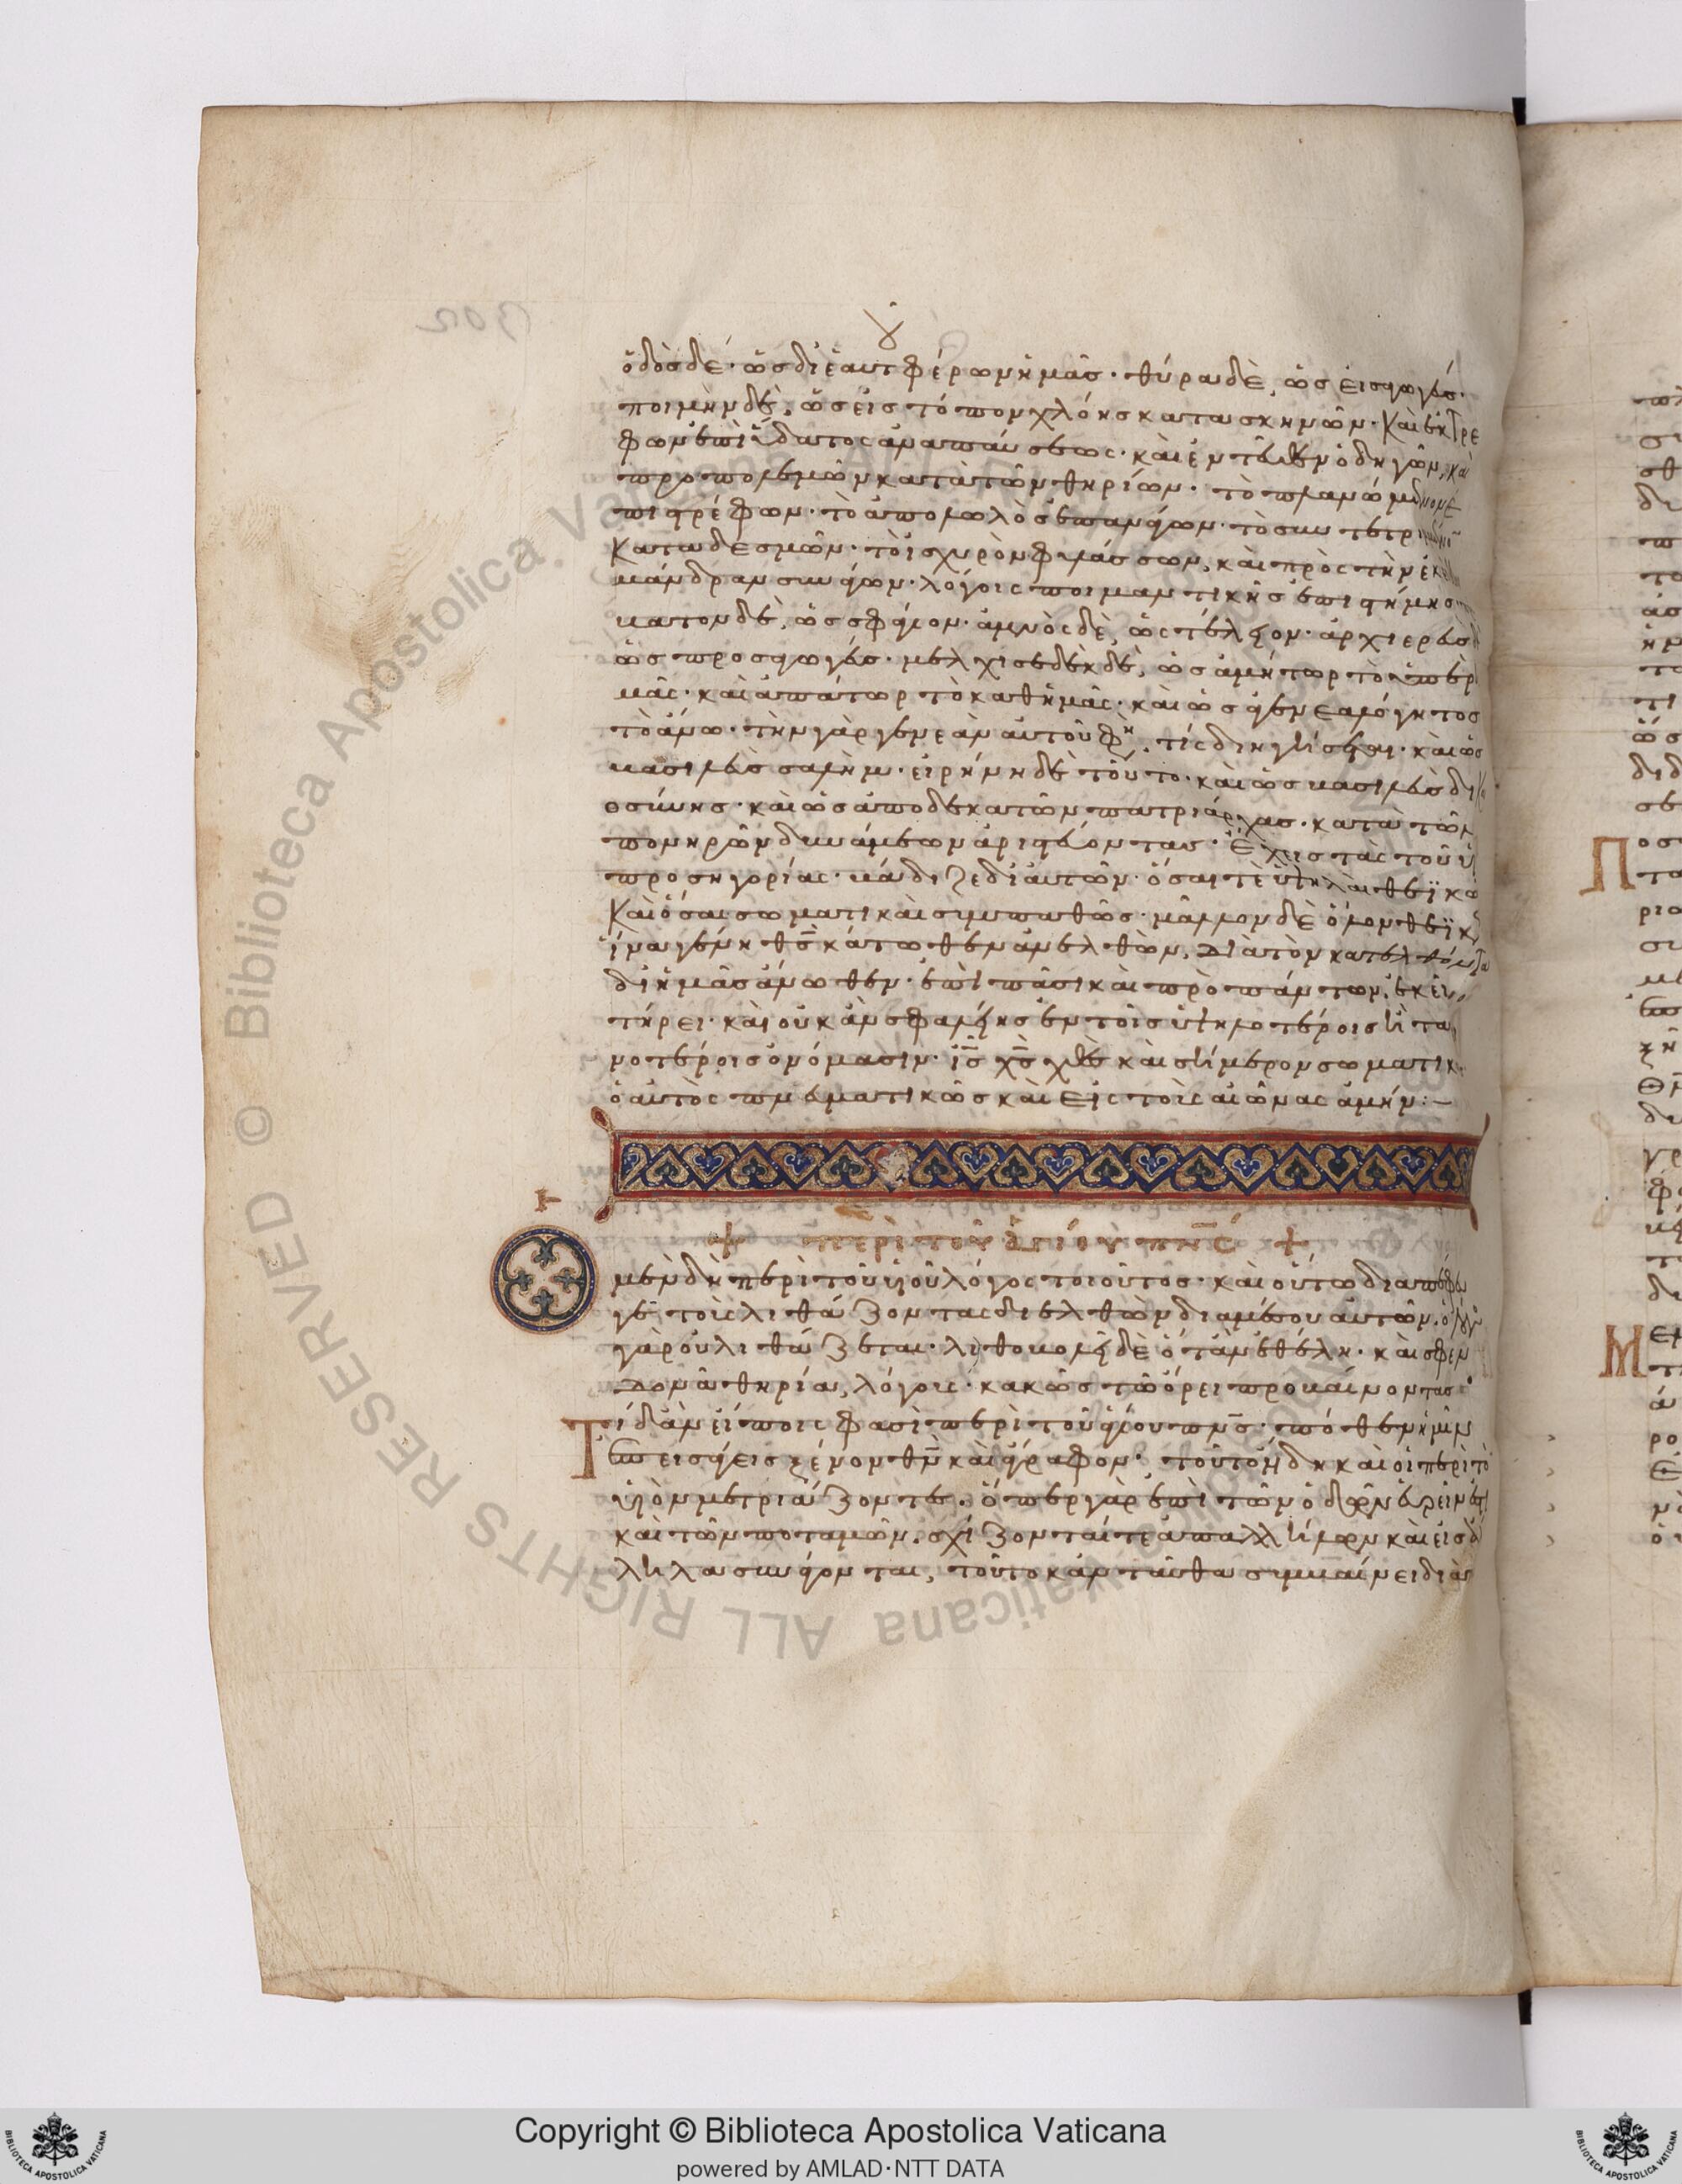 ὁδὸς δέ· ὡς δι' ἑαυτοῦ φέρων ἡμᾶς· θύρα δὲ, ὡς εἰσαγωγεύς·
ποιμὴν δὲ, ὡς εἰς τόπον χλόης κατασκηνῶν· καὶ ἐκτρέ
φων ἐπὶ ὕδατος ἀναπαύσεως· κἀντεῦθεν ὁδηγῶν, καὶ
προπολεμῶν κατὰ τῶν θηρίων· τὸ πλανώμενον ἐ
πιστρέφων· τὸ ἀπολωλὸς ἐπανάγων· τὸ συντετριμμένον
καταδεσμῶν· τὸ ἰσχυρὸν φυλάσσων, καὶ πρὸς τὴν ἐκεῖθεν
μάνδραν συνάγων· λόγοις ποιμαντικῆς ἐπιστήμης· πρό
βατον δὲ, ὡς σφάγιον· ἀμνὸς δὲ, ὡς τέλειον· ἀρχιερεὺς δὲ
ὡς προσαγωγεύς· μελχισεδὲκ δὲ, ὡς ἀμήτωρ τὸ ὑπὲρ ἡ
μᾶς· καὶ ἀπάτωρ τὸ καθ' ἡμᾶς· καὶ ὡς ἀγενεαλόγητος
τὸ ἄνω· τὴν γὰρ γενεὰν αὐτοῦ φη, τίς διηγήσεται· καὶ ὡς
βασιλεὺς σαλήμ· εἰρήνη δὲ τοῦτο· καὶ ὡς βασιλεὺς δικαι
οσύνης· καὶ ὡς ἀποδεκατῶν πατριάρχας· κατὰ τῶν
πονηρῶν δυνάμεων ἀριστεύοντας· Ἔχεις τὰς τοῦ υἱοῦ
προσηγορίας· βάδιζε δι' αὐτῶν· ὅσαι τε ὑψηλαὶ θεϊκῶς
καὶ ὅσαι σωματικαὶ συμπαθῶς· μᾶλλον δὲ ὅλον θεϊκῶς
ἵνα γένῃ θς κάτωθεν ἀνελθὼν, διὰ τὸν κατελθόντα
δι' ἡμᾶς ἄνωθεν· ἐπὶ πᾶσι καὶ πρὸ πάντων, ἐκεῖνο
τήρει· καὶ οὐκ ἂν σφαλείης ἐν τοῖς ὑψηλοτέροις ἢ ταπει
νοτέροις ὀνόμασιν· ις χς χθὲς καὶ σήμερον σωματικῶς
ὁ αὐτὸς πνευματικῶς καὶ εἰς τοὺς αἰῶνας ἀμήν:–
+ περὶ τοῦ ἁγίου πνς +
Ὁ μὲν δὴ περὶ τοῦ υἱοῦ λόγος τοιοῦτος· καὶ οὕτω διαπέφευ
γε τοὺς λιθάζοντας διελθὼν διὰ μέσου αὐτῶν· ὁ λόγος
γὰρ οὐ λιθάζεται· λιθοβολεῖ δὲ ὅταν ἐθέλῃ· καὶ σφεν
δονᾶ θηρία, λόγους· κακῶς τῷ ὄρει προσβαίνοντας·
Τί δ' ἂν εἴποις φασὶ περὶ τοῦ ἁγίου πνς· πόθεν ἡμῖν
ἐπεισάγεις ξένον θν καὶ ἄγραφον· τοῦτο ἤδη καὶ οἱ περὶ τὸν
υἱὸν μετριάζοντες· ὅπερ γὰρ ἐπὶ τῶν ὁδῶν εὑρεῖν ἔστι
καὶ τῶν ποταμῶν, σχίζονταί τε ἀπ' ἀλλήλων καὶ εἰς ἀλ
λήλα συνάγονται, τοῦτο κἀνταῦθα συμβαίνει διὰ